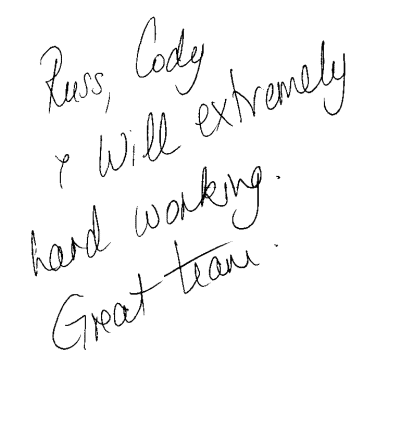 Russ, Cody
+ Will extremely
hard working.
Great team.